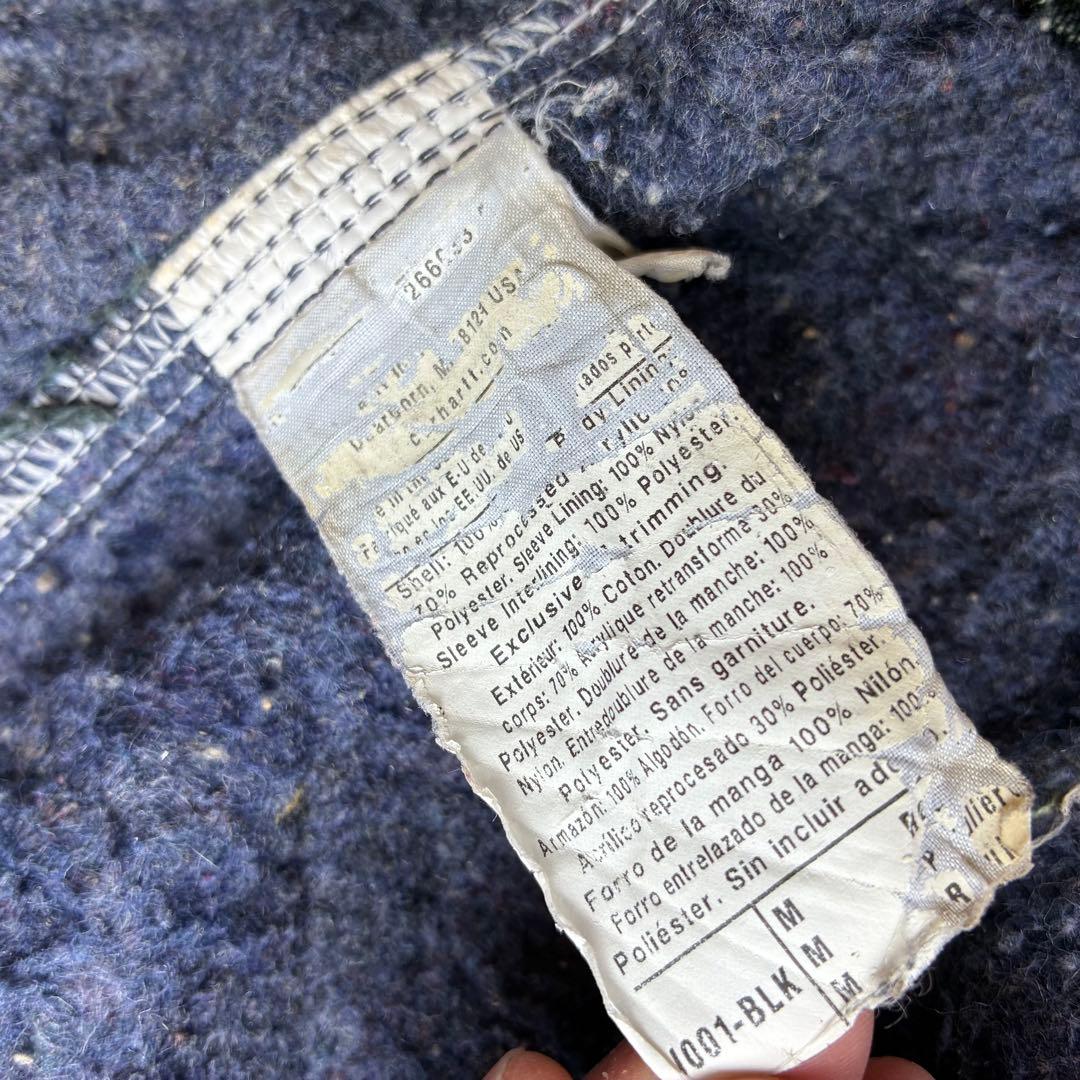 Dearborn, 48121 USA
aux E-U de
EE.UU. de US
ados
Lining:
Shell: 100%
70% Reprocessed
Polyester. Sleeve Lining: 100%
Sleeve Interlining: 100% Polyester.
Exclusive trimming.
Extérieur: 100% Coton. Doublure du
corps: 70% Acrylique retransforme 30%
Polyester. Doublure de la manche: 100%
Nylon. Entredoublure de la manche: 100%
Polyester. Sans garniture.
Armazón: 100% Algodón. Forro del cuerpo: 70%
Acrílico reprocesado 30% Poliéster.
Forro de la manga 100% Nilón
Forro entrelazado de la manga: 100
Poliéster. Sin incluir
J001-BLK M
M
M
R